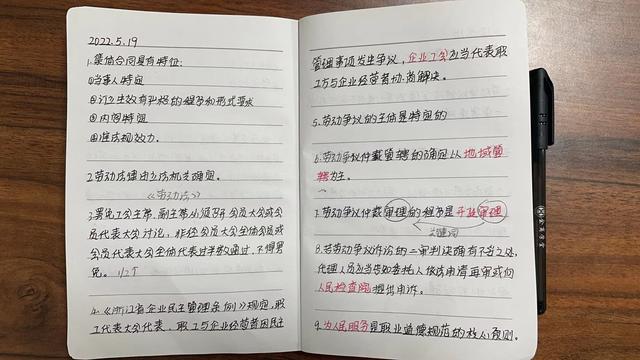 2022.5.19
1.集体合同具有特征:
①当事人特定
②订立生效有严格的程序和形式要求
③内容特定
④准法规效力.
2.劳动法律由立法机关确定.
《劳动法》
3.罢免工会主席、副主席必须召开会员大会或会
员代表大会讨论,非经会员大会全体会员或
会员代表大会全体代表过半数通过,不得罢
免。 1/2↑
4.《浙江省企业民主管理条例》规定,职
工代表大会代表、职工与企业经营者因民主
管理事项发生争议,企业工会应当代表职
工方与企业经营者协商解决。
5.劳动争议的主体是特定的
6.劳动争议仲裁管辖的确定以地域管
辖为主。
7.劳动争议仲裁审理的程序是开庭审理
关键词
8.若劳动争议诉讼的二审判决确有不当之处,
代理人员应当告知委托人依法申请再审或向
人民检查院提出申诉。
9.为人民服务是职业道德规范的核心原则.